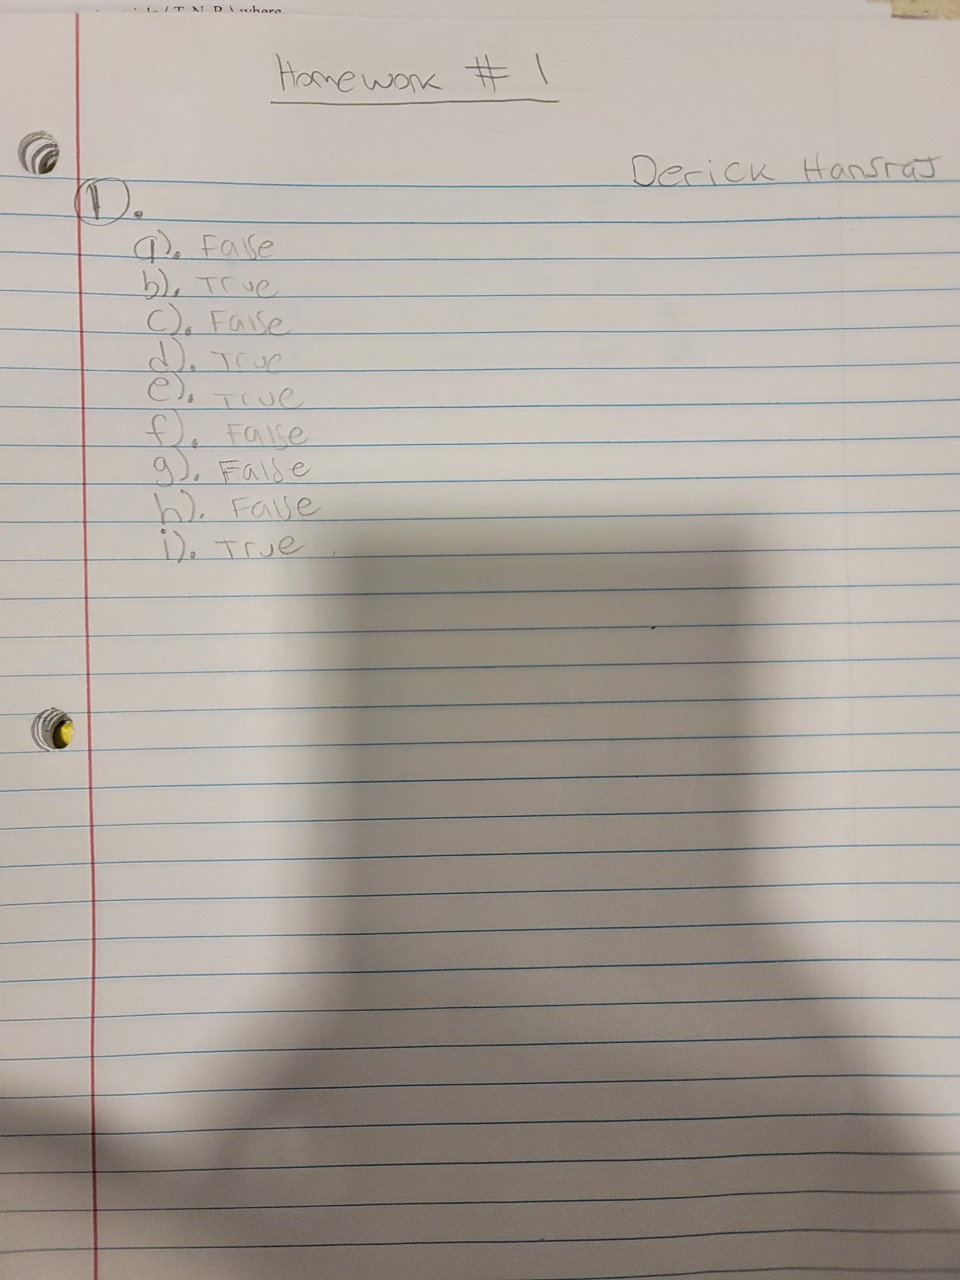 where
Homework # 1
Derick Hansraj
1).
a). False
b). True
c). False
d). True
e). True
f). False
g). False
h). False
i). True